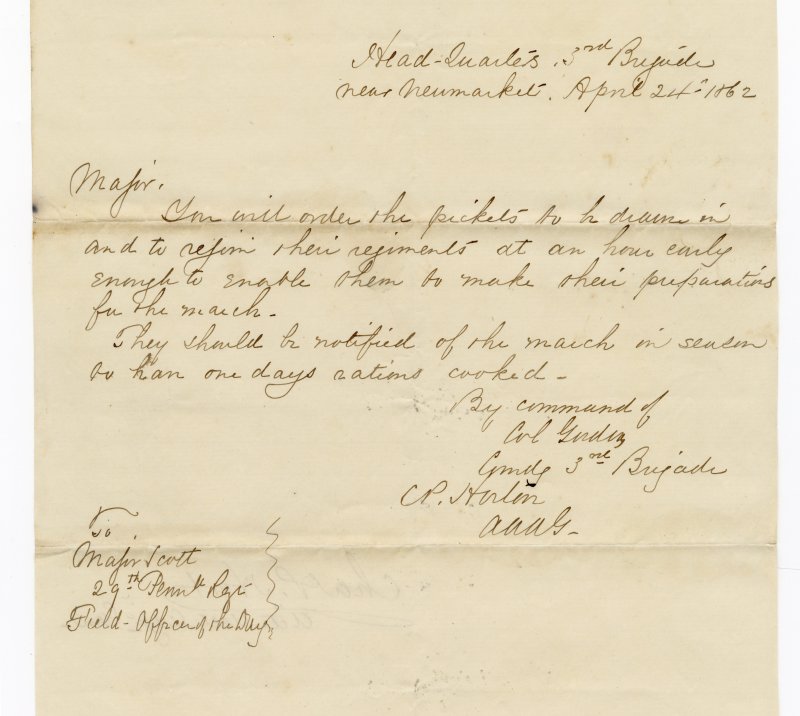 Head-Quarters, 3rd Brigade
near Newmarket. April 24th 1862
Major.
You will order the pickets to be drawn in
and to rejoin their regiments at an hour early
enough to enable them to make their preparations
for the march.
They should be notified of the march in season
to have one days rations cooked.
By command of
Col Gordon
Cmdg 3rd Brigade
C.P. Horton
AAAG.
To
Major Scott
29th Penn. Regt
Field-Officer of the Day